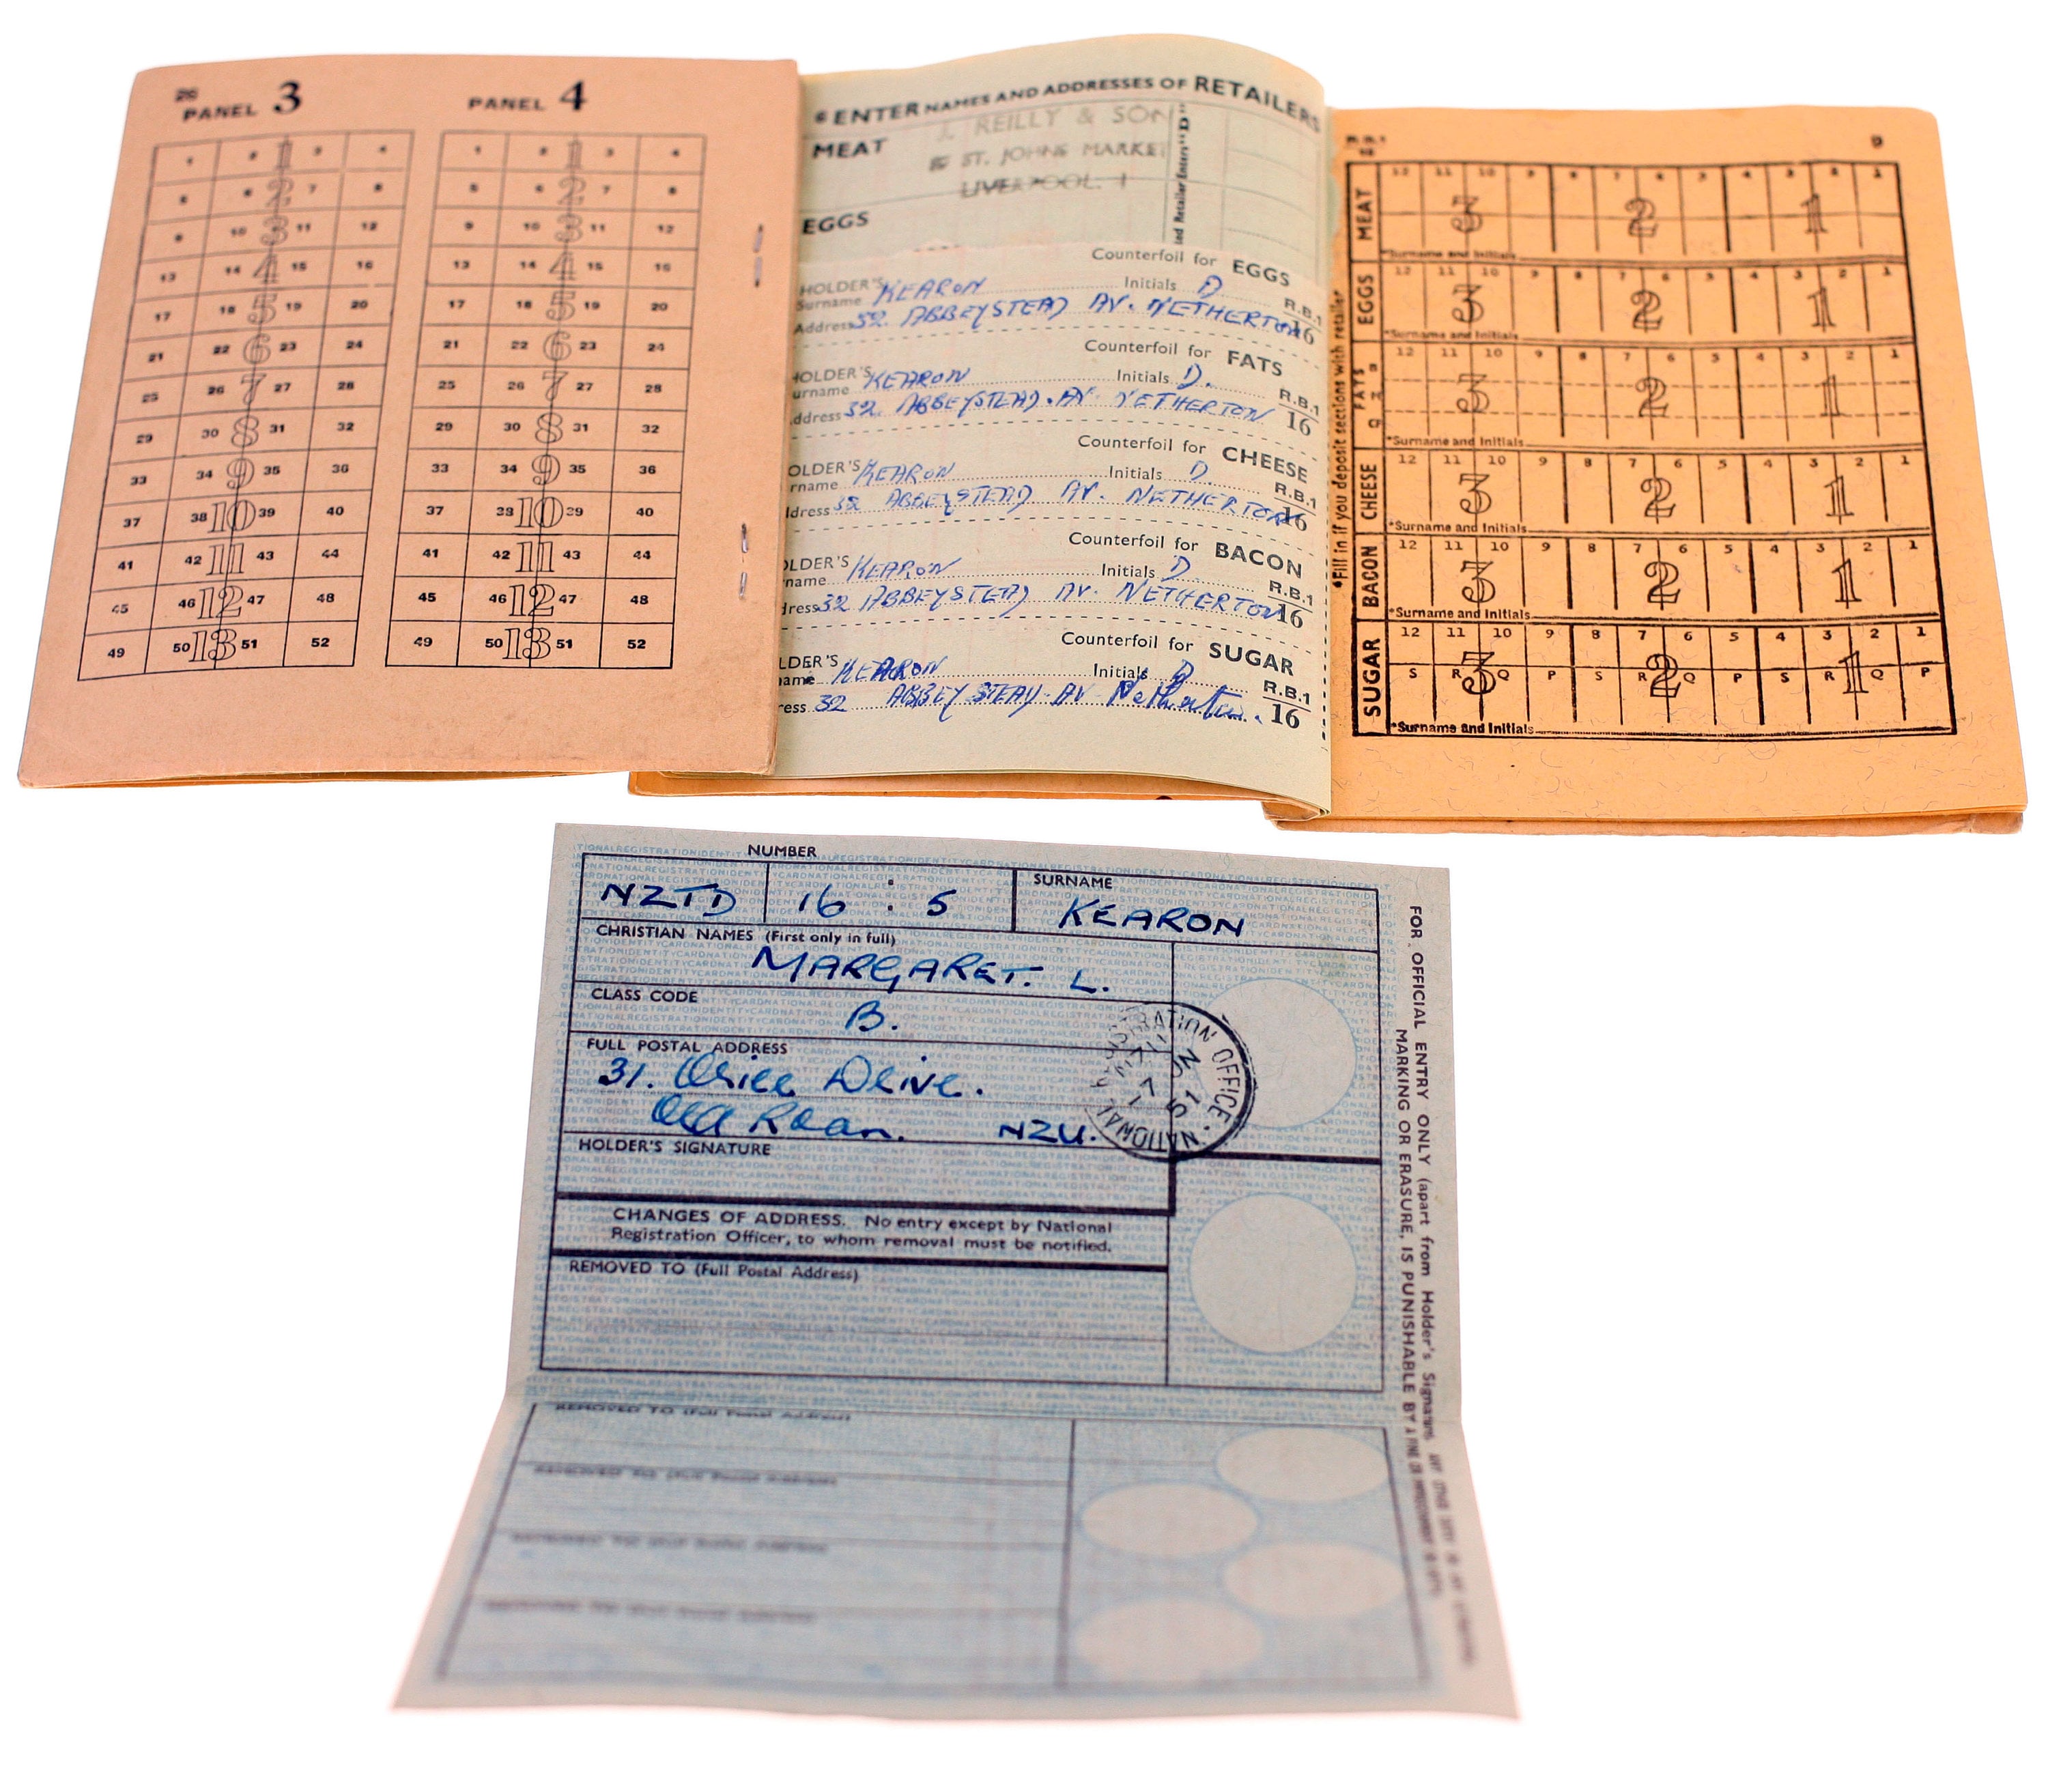 26
PANEL 3 PANEL 4
1 2 1 3 4 1 2 1 3 4
5 6 2 7 8 5 6 2 7 8
9 10 3 11 12 9 10 3 11 12
13 14 4 15 16 13 14 4 15 16
17 18 5 19 20 17 18 5 19 20
21 22 6 23 24 21 22 6 23 24
25 26 7 27 28 25 26 7 27 28
29 30 8 31 32 29 30 8 31 32
33 34 9 35 36 33 34 9 35 36
37 38 10 39 40 37 38 10 39 40
41 42 11 43 44 41 42 11 43 44
45 46 12 47 48 45 46 12 47 48
49 50 13 51 52 49 50 13 51 52
ENTER NAMES AND ADDRESSES OF RETAILERS
MEAT J. REILLY & SON
ST. JOHNS MARKET
LIVERPOOL. 1
Retailer Enters "D"
EGGS
Counterfoil for EGGS
HOLDER'S
Surname KEARON Initials D.
Address 32 ABBEYSTEAD AV. NETHERTON
R.B.1
16
Counterfoil for FATS
HOLDER'S
urname KEARON Initials D.
ddress 32 ABBEYSTEAD. AV. NETHERTON
R.B.1
16
Counterfoil for CHEESE
OLDER'S
rname KEARON Initials D.
dress 32 ABBEYSTEAD AV. NETHERTON
R.B.1
16
Counterfoil for BACON
OLDER'S
name KEARON Initials D.
dress 32 ABBEYSTEAD AV. NETHERTON
R.B.1
16
Counterfoil for SUGAR
LDER'S
ame KEARON Initials D
ess 32 ABBEYSTEAD AV Netherton.
R.B.1
16
*Fill in if you deposit sections with retailer
9
MEAT 12 11 10 9 8 7 6 5 4 3 2 1
3 2 1
*Surname and Initials
EGGS 12 11 10 9 8 7 6 5 4 3 2 1
3 2 1
*Surname and Initials
FATS 12 11 10 9 8 7 6 5 4 3 2 1
3 2 1
*Surname and Initials
CHEESE 12 11 10 9 8 7 6 5 4 3 2 1
3 2 1
*Surname and Initials
BACON 12 11 10 9 8 7 6 5 4 3 2 1
3 2 1
*Surname and Initials
SUGAR 12 11 10 9 8 7 6 5 4 3 2 1
3 2 1
S R Q P S R Q P S R Q P
*Surname and Initials
NUMBER
NZTD 16 : 5
SURNAME
KEARON
CHRISTIAN NAMES (First only in full)
MARGARET. L.
CLASS CODE
B.
FULL POSTAL ADDRESS
31. Oriel Drive.
Old Roan. NZU.
NATIONAL REGISTRATION OFFICE
17 JN
51
HOLDER'S SIGNATURE
CHANGES OF ADDRESS. No entry except by National
Registration Officer, to whom removal must be notified.
REMOVED TO (Full Postal Address)
REMOVED TO (Full Postal Address)
REMOVED TO (Full Postal Address)
REMOVED TO (Full Postal Address)
REMOVED TO (Full Postal Address)
FOR OFFICIAL ENTRY ONLY (apart from Holder's Signature).
MARKING OR ERASURE, IS PUNISHABLE BY A FINE OR IMPRISONMENT